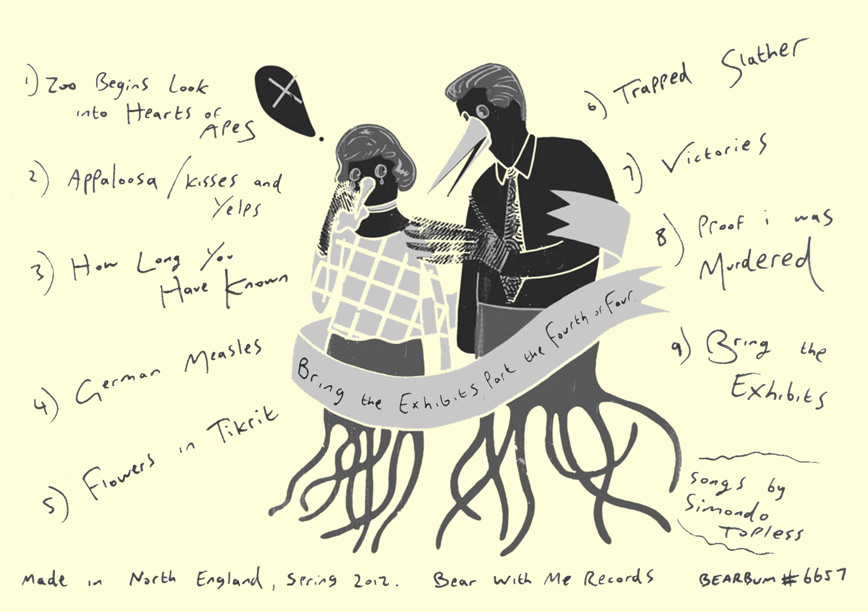 1) Zoo Begins Look
into Hearts of
APES
2) Appaloosa / kisses and
Yelps
3) How Long You
Have Known
4) German Measles
5) Flowers in Tikrit
6) Trapped Slather
7) Victories
8) Proof i was
Murdered
9) Bring the
Exhibits
Bring the Exhibits, Part the Fourth of Four.
songs by
Simondo
Topless
Made in North England, Spring 2012. Bear With Me Records BEARBUM #6657